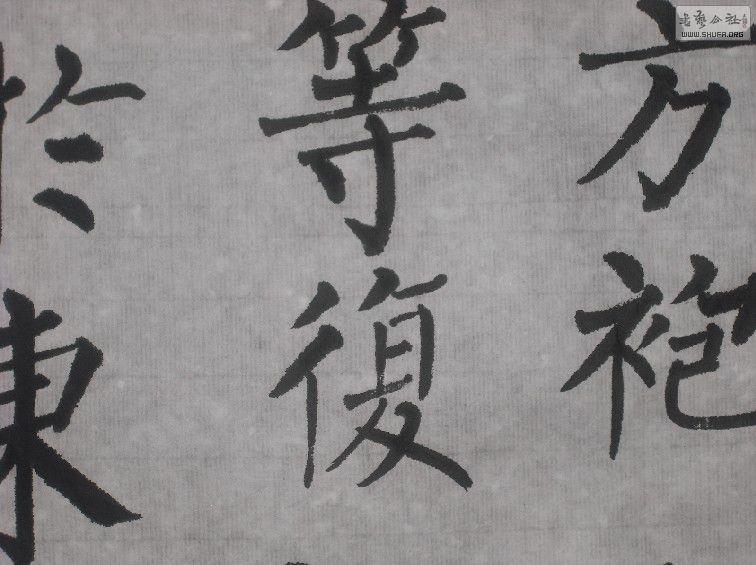 方袍
等復
於東
書藝公社
WWW.SHUFA.ORG